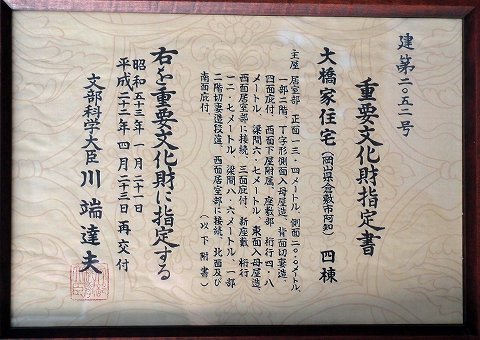 建第二〇五二号
重要文化財指定書
大橋家住宅(岡山県倉敷市阿知) 四棟
主屋 居室部 正面一三・四メートル、側面二〇・〇メートル、
一部二階、丁字形側面入母屋造、背面切妻造、
四面庇付、西面下屋附属、座敷部 桁行四・八
メートル、梁間六・七メートル、東面入母屋造、
西面居室部に接続、三面庇付 新座敷 桁行
一二・七メートル、梁間八・六メートル、一部
二階切妻造段違、西面居室部に接続、北面及び
南面庇付 (以下附書)
右を重要文化財に指定する
昭和五十三年 一月二十一日
平成二十二年 四月二十三日 再交付
文部科学大臣 川端達夫